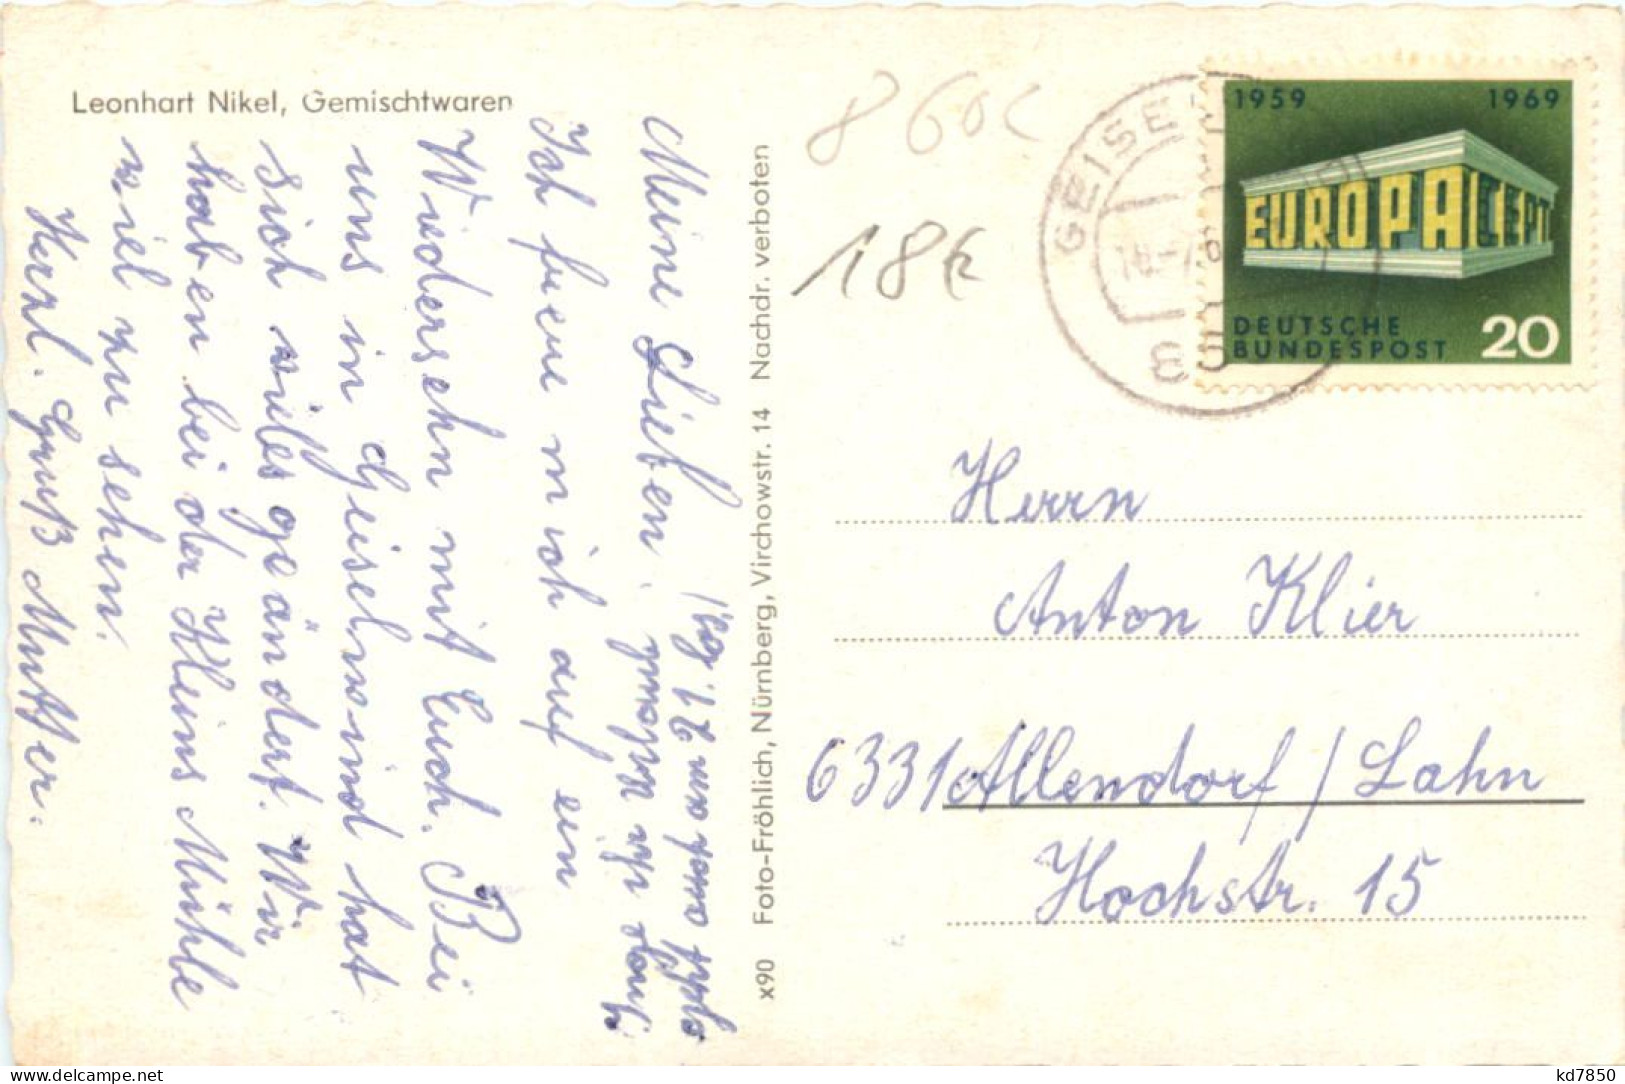 Leonhart Nikel, Gemischtwaren
Meine Lieben.
Ich freue mich auf ein
Wiedersehn mit Euch. Bei
uns in Geiselwind hat
sich vieles geändert. Wir
haben bei der Kleins Mühle
viel zu sehen.
Herzl. Gruß Mutter.
x90 Foto-Fröhlich, Nürnberg, Virchowstr. 14 Nachdr. verboten
860c
18€
GEISELWIND
1959 1969
EUROPA CEPT
DEUTSCHE
BUNDESPOST 20
Herrn
Anton Klier
6331 Allendorf / Lahn
Hochstr. 15
kd7850